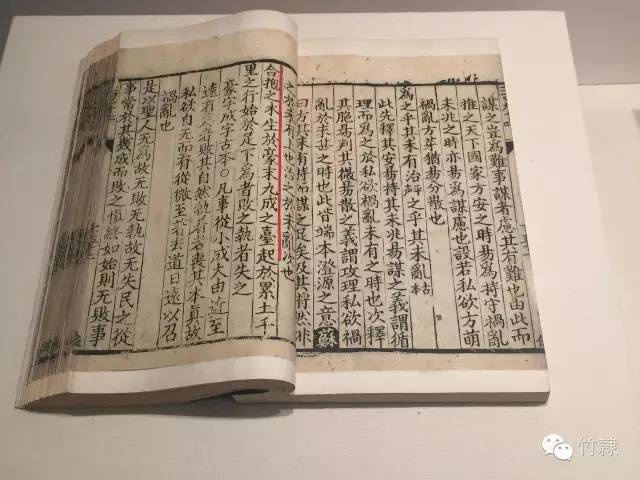 謀之豈為難事謀者應其有難也由此而
推之天下國家方安之時易為持守禍亂
未兆之時亦易為謀應也設若私欲方萌
禍亂方芽猶易分散也
為之乎其未有治平聲之乎其未亂
此先釋其安易持其未兆易謀之義謂循
理而為之於私欲禍亂未有之時也次釋
其脆易判其微易散之義謂攻理私欲禍
亂於未甚之時也此皆端本澄源之意蘇
曰方其未有持而謀之足矣及其將然非
之於未有也治之於未亂次也
合抱之木生於豪末九成之臺起於累土千
里之行始於足下為者敗之執者失之
豪字成字古本○凡事從小成大由近至
遠有為者敗其自然執着者喪其本真故
私欲自无而有從微至著去道日遠以召
禍亂也
是以聖人无為故无敗无執故无失民之從
事常於其幾成而敗之慎終如始則无敗事
竹隸